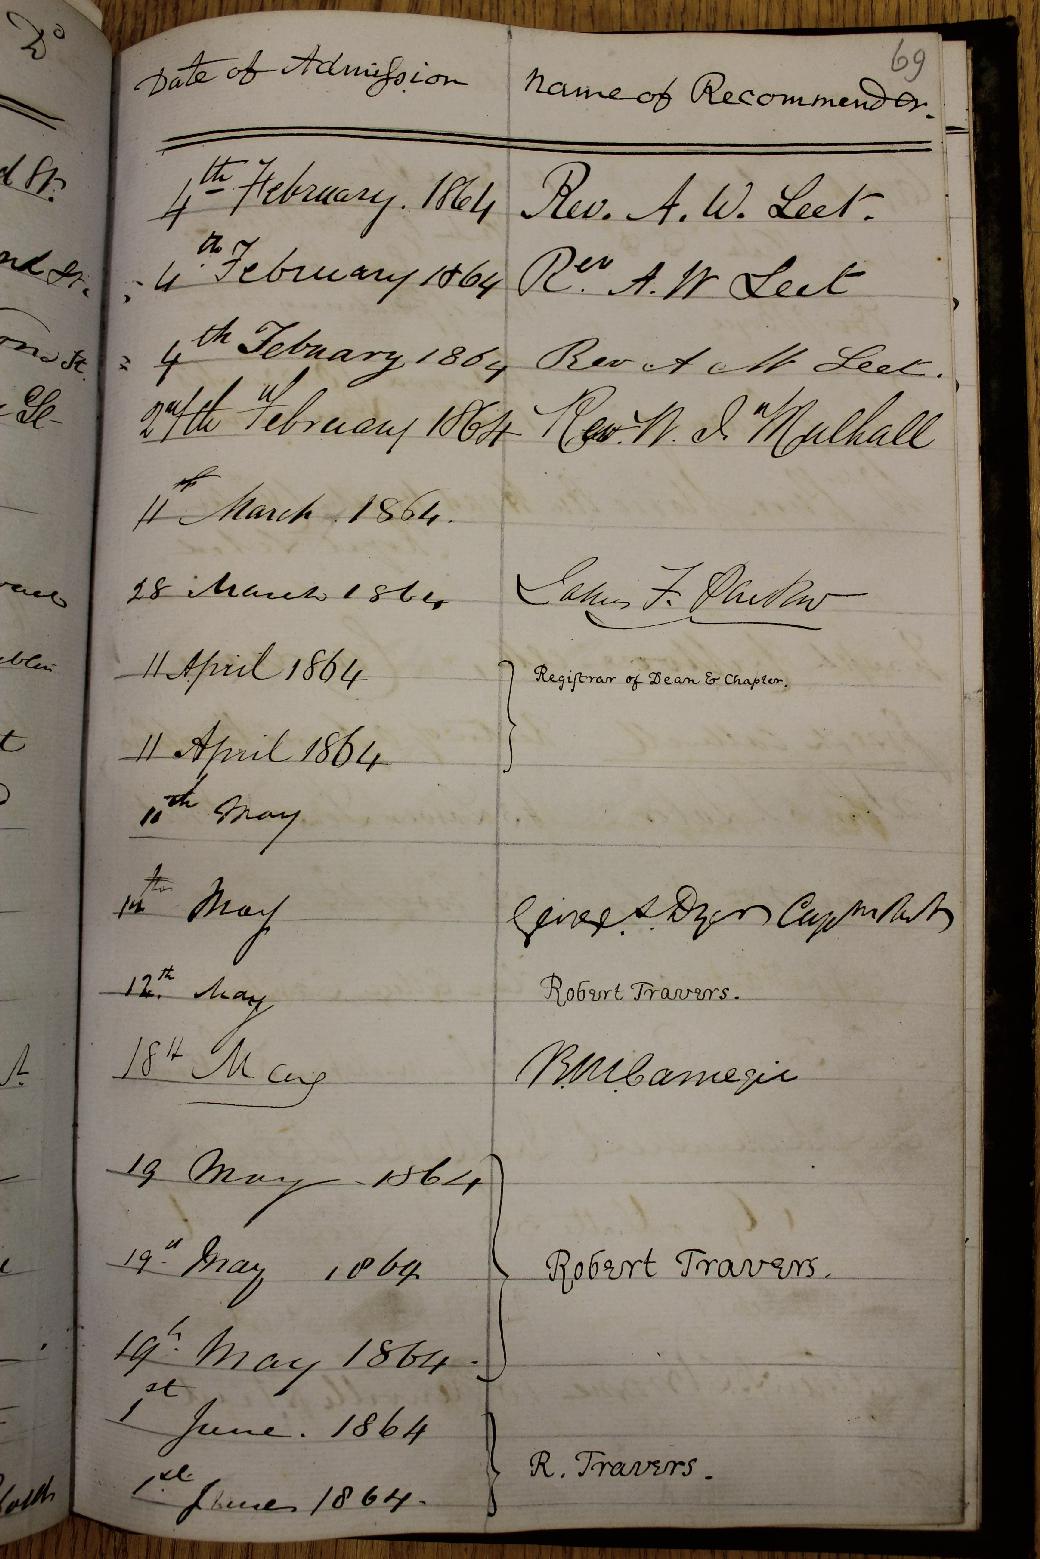 Do
69
Date of Admission Name of Recommender.
4th February. 1864 Rev. A. W. Leet.
4th February 1864 Rev. A. W Leet
4th Febuary 1864 Rev A W Leet.
24th February 1864 Rev. W. J. Mulhall
11th March. 1864.
28 March 1864 James F.
11 April 1864 Registrar of Dean & Chapter.
11 April 1864
11th May
12th May George S. Dyer
12th. May Robert Travers.
18th May Carnegie
19 May 1864
19th May 1864 Robert Travers.
19th. May 1864.
1st June. 1864
R. Travers.
1st June 1864.